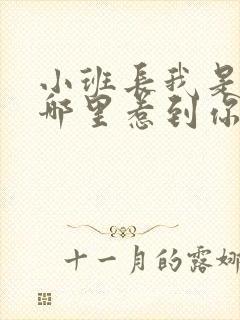 小班长我是
哪里惹到你
十一月的露娜